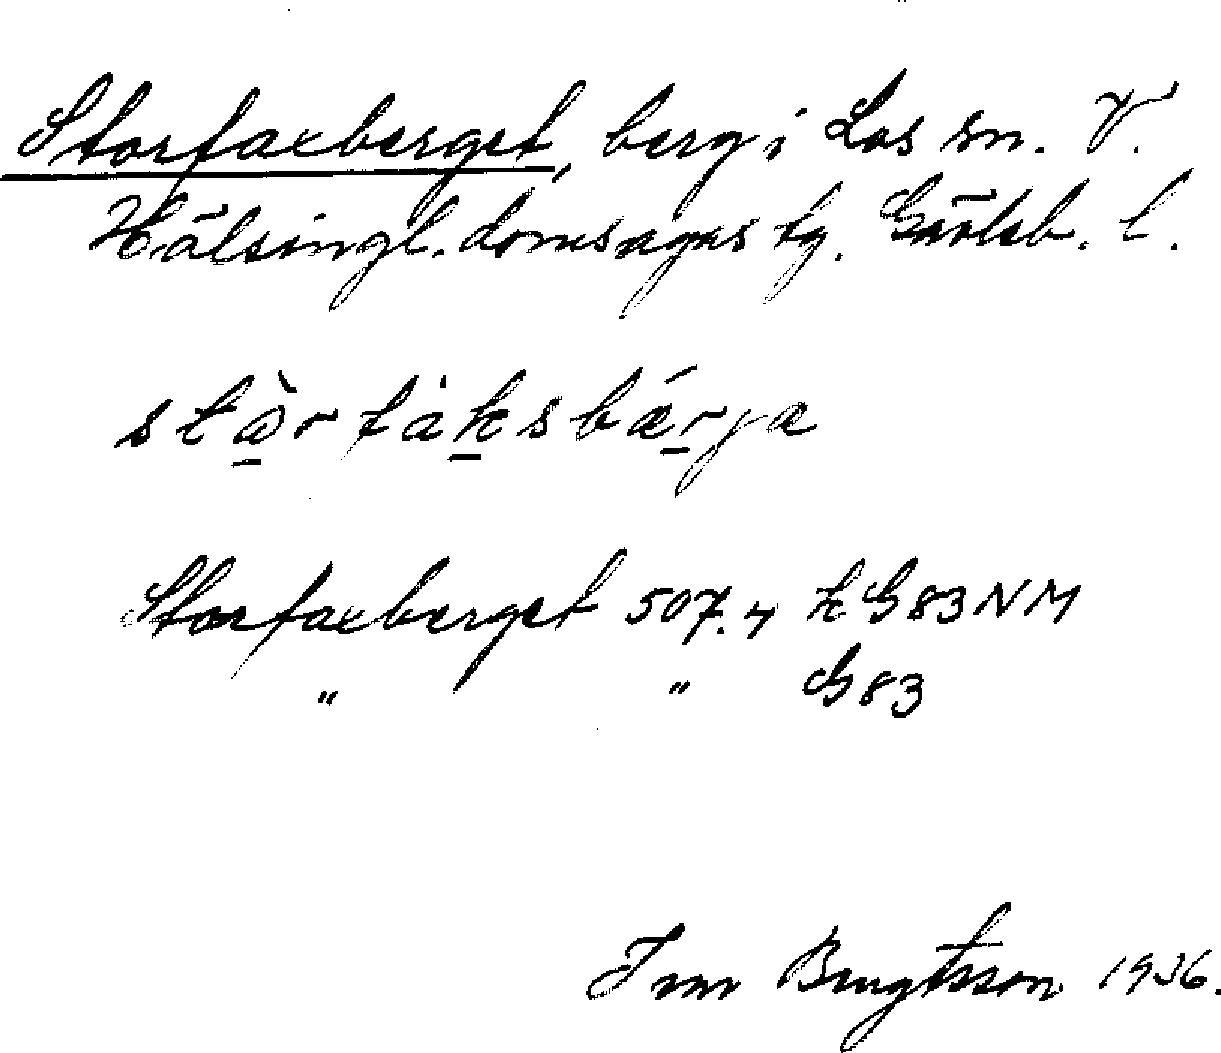 Storfaxberget, berg i Los sn. V.
Hälsingl. domsagas tg. Gävleb. l.
stå̀rfàksbǽrjæ
Storfaxberget 507.4 k G83NM
" " G83
Bengtsson 1936.